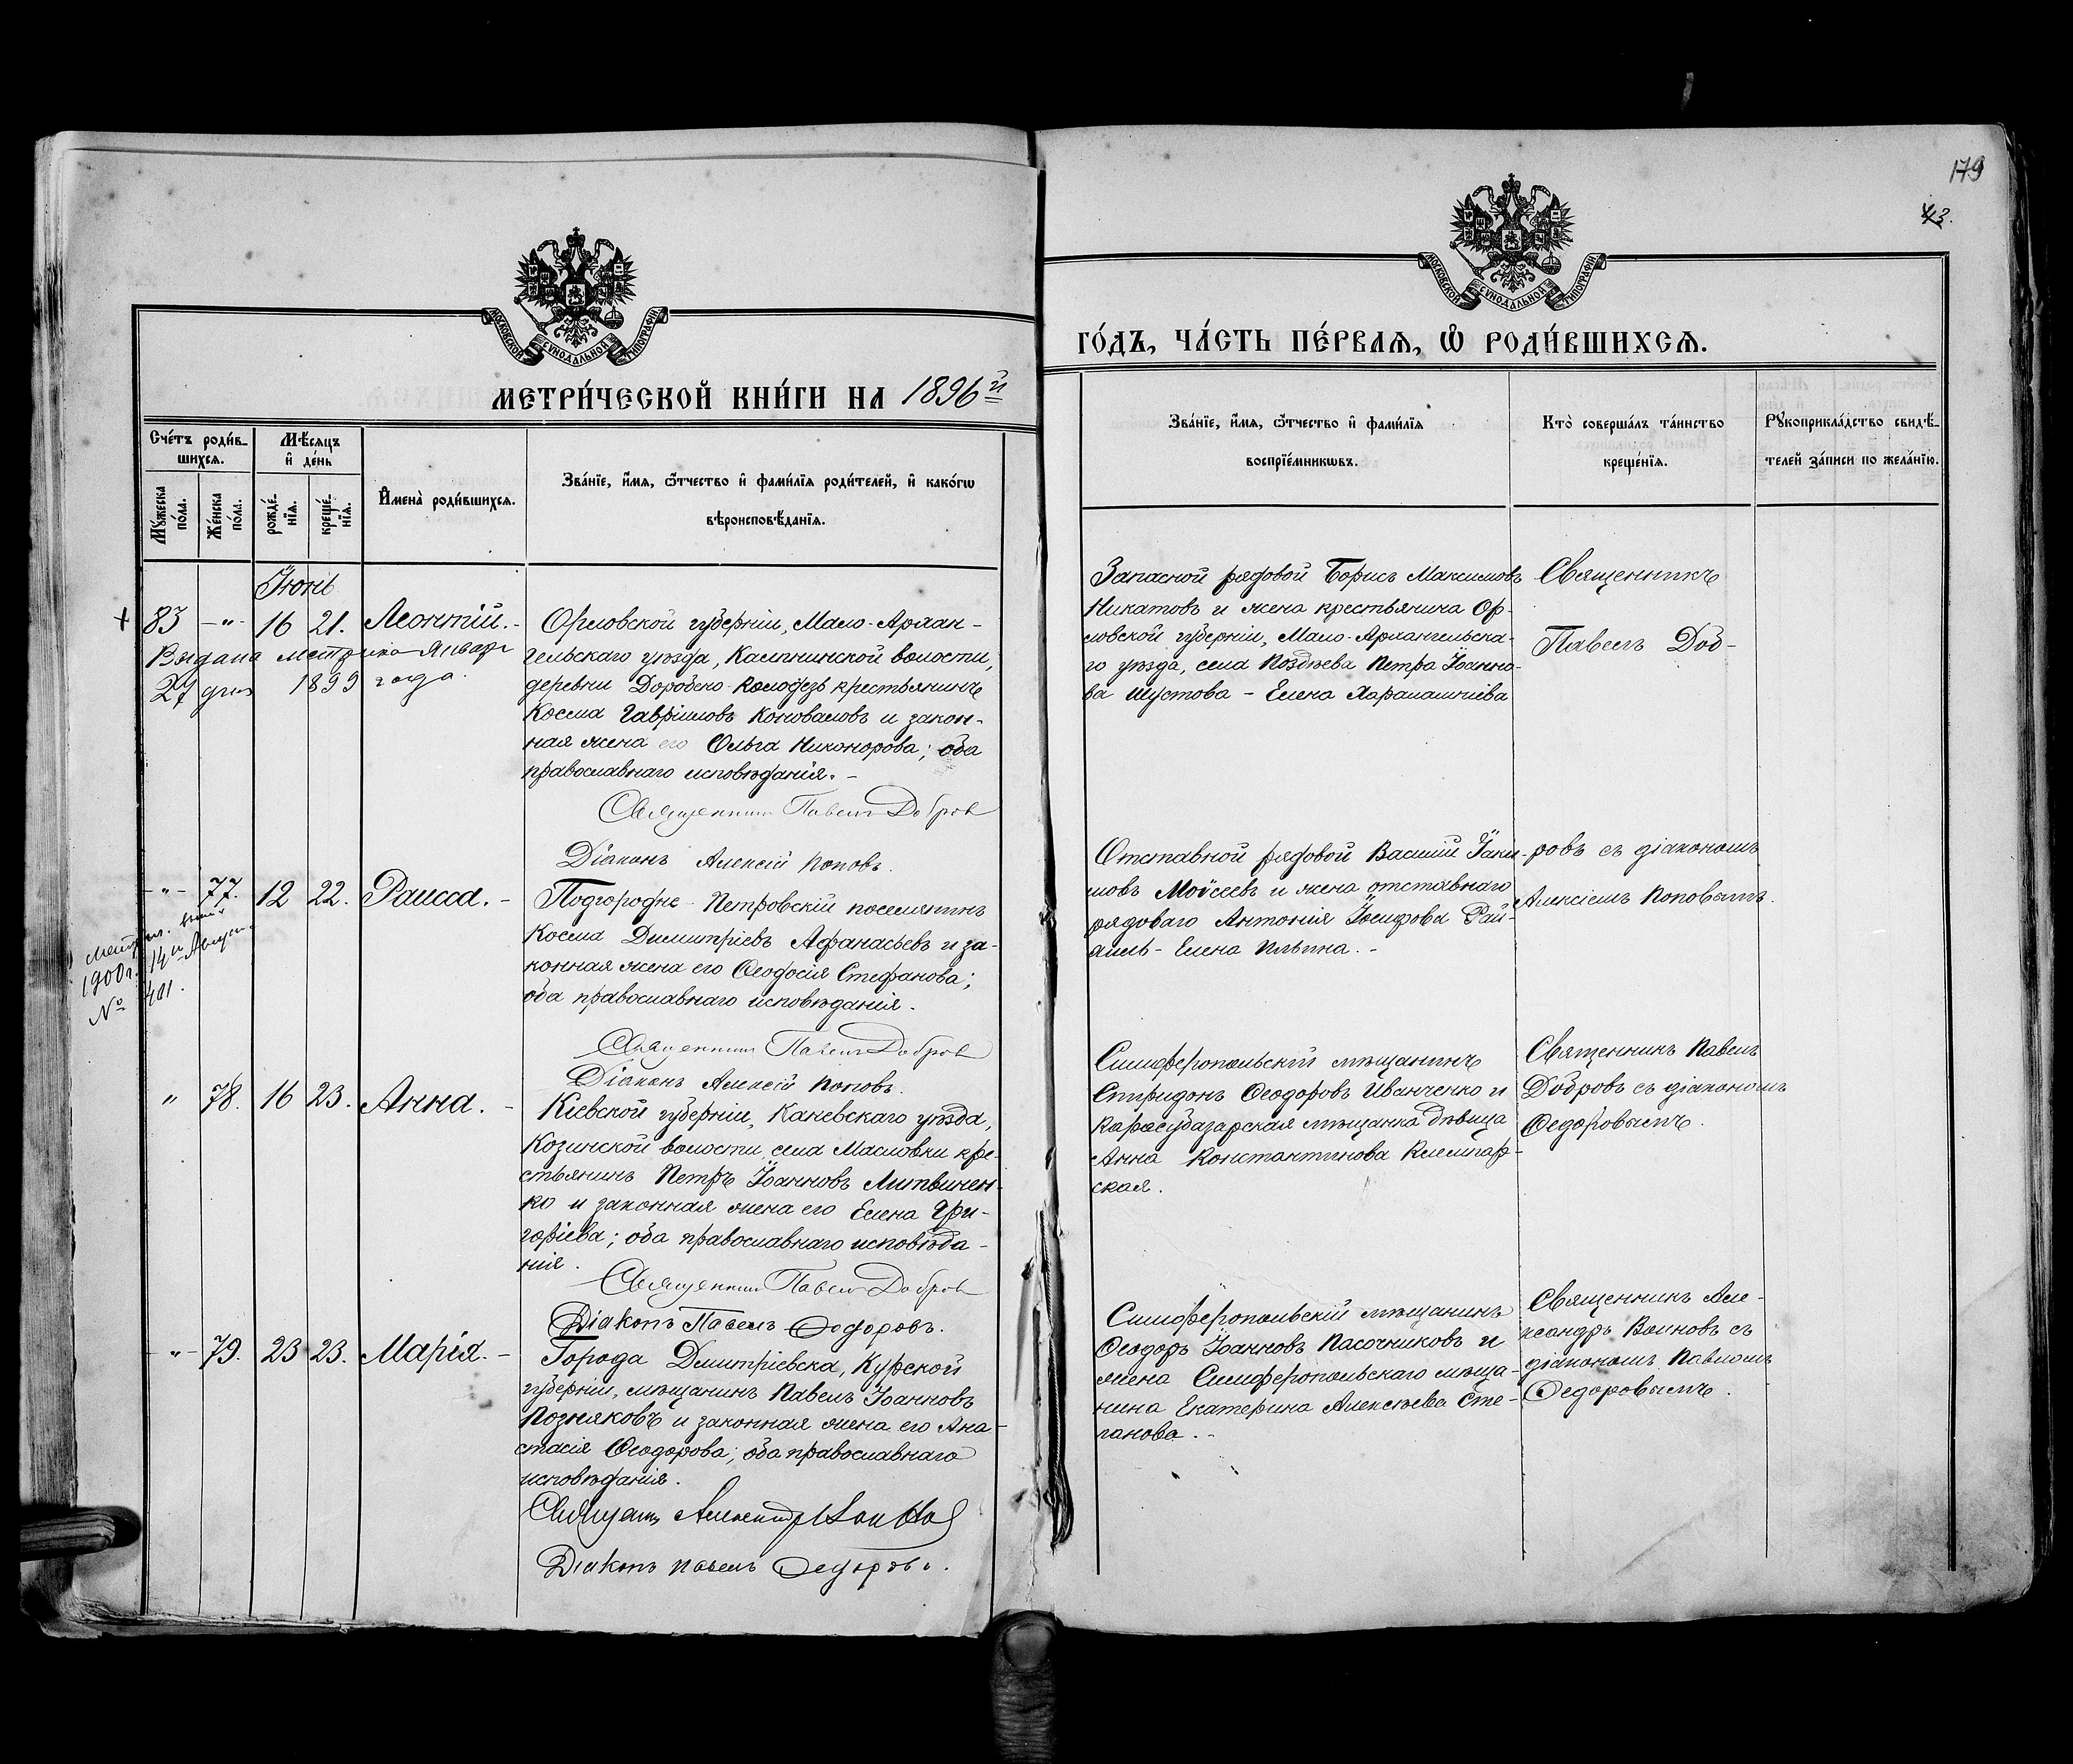 179
43.
МОСКОВСКОЙ СѴНОДАЛЬНОЙ ТИПОГРАФІИ
МОСКОВСКОЙ СѴНОДАЛЬНОЙ ТИПОГРАФІИ
МЕТРИ́ЧЕСКОЙ КНИ́ГИ НА 1896й
ГО́ДЪ, ЧА́СТЬ ПЕ́РВАѦ, Ѽ РОДИ́ВШИХСѦ.
Сче́тъ роди́в-
шихсѧ.
Мꙋ́жеска по́ла.
Же́нска по́ла.
Мѣ́сѧцъ
и҆ де́нь
рожде́-
нїѧ.
креще́-
нїѧ.
И҆мена̀ роди́вшихсѧ.
Зва́нїе, и҆́мѧ, ѻ҆́тчество и҆ фами́лїѧ роди́телей, и҆ како́гѡ
вѣроисповѣ́данїѧ.
Зва́нїе, и҆́мѧ, ѻ҆́тчество и҆ фами́лїѧ
воспрїе́мникѡвъ.
Кто̀ соверша́лъ та́инство
креще́нїѧ.
Рꙋкоприкла́дство свидѣ́-
телей за́писи по жела́нїю.
Іюнь
+ 83 -"- 16 21. Леонтій.-
Выдана метрика Январ
27 дня 1899 года.
Орловской губерніи, Мало-Архан-
гельскаго уѣзда, волости,
деревни колодезь крестьянинъ
Косма Гавріиловъ Коноваловъ и закон-
ная жена его Ольга Никонорова; оба
православнаго исповѣданія.-
Священник Павелъ Добров
Діаконъ Алексій Поповъ.
Запасной рядовой Борисъ Максимовъ
Никатовъ и жена крестьянина Ор-
ловской губерніи, Мало-Архангельска-
го уѣзда, села Поздѣева Петра Іоанно-
ва Шустова - Елена Харалампіева
Священникъ
Павелъ Доб-
ровъ съ діакономъ
Алексіемъ Поповымъ.
-"- 77. 12 22. Раисса.-
1900 г. 14
№ 401.
Подгородне-Петровскій поселянинъ
Косма Димитріевъ Афанасьевъ и за-
конная жена его Ѳеодосія Стефанова;
оба православнаго исповѣданія.
Священник Павелъ Добров
Діаконъ Алексій Поповъ.
Отставной рядовой Василій Іаки-
мовъ Моѵсеевъ и жена отставнаго
рядоваго Антонія Іосифова Рай-
- Елена Ильина.-
" 78. 16 23. Анна.-
Кіевской губерніи, Каневскаго уѣзда,
Козинской волости, села Масловки кре-
стьянинъ Петръ Іоанновъ Литвинен-
ко и законная жена его Елена Гри-
горіева; оба православнаго исповѣда-
нія.
Священник Павел Добров
Діаконъ Павелъ Ѳедоровъ.
Симферопольскій мѣщанинъ
Спиридонъ Ѳеодоровъ Иванченко и
Карасубазарская мѣщанка дѣвица
Анна Константинова
ская.
Священникъ Павелъ
Добровъ съ діакономъ
Ѳедоровымъ.
-"- 79. 23 23. Марія.-
Города Дмитріевска, Курской
губерніи, мѣщанинъ Павелъ Іоанновъ
Позняковъ и законная жена его Ана-
стасія Ѳеодорова; оба православнаго
исповѣданія.
Священ. Александръ Воиновъ
Діаконъ Павелъ Ѳедоровъ.
Симферопольскій мѣщанинъ
Ѳеодоръ Іоанновъ Пасочниковъ и
жена Симферопольскаго мѣща-
нина Екатерина Алексѣева Сте-
панова.-
Священникъ Але-
ксандръ Воиновъ съ
діакономъ Павломъ
Ѳедоровымъ.